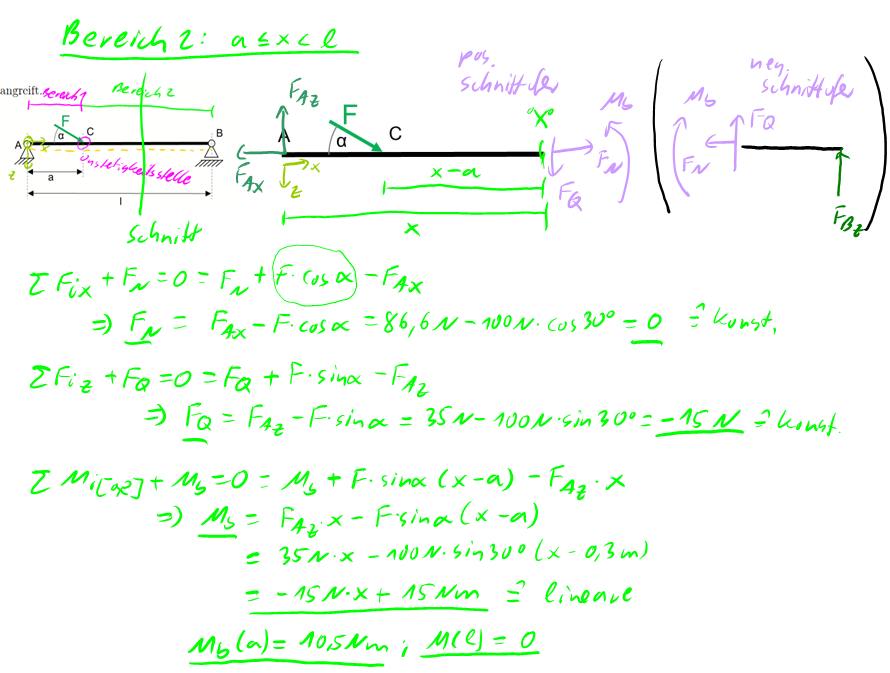 Bereich 2: a ≤ x < l
angreift. Bereich 1 Bereich 2
F α C
A B
x
z
Unstetigkeitsstelle
a
l
Schnitt
F_Az
F
A α C
F_Ax
x
z
x-a
x
pos.
Schnittufer
"x"
M_b
F_N
F_Q
neg.
Schnittufer
M_b F_Q
F_N
F_Bz
ΣF_ix + F_N = 0 = F_N + F·cosα - F_Ax
⇒ F_N = F_Ax - F·cosα = 86,6N - 100N·cos30° = 0 ≙ konst.
ΣF_iz + F_Q = 0 = F_Q + F·sinα - F_Az
⇒ F_Q = F_Az - F·sinα = 35N - 100N·sin30° = -15N ≙ konst.
ΣM_i["x"] + M_b = 0 = M_b + F·sinα (x-a) - F_Az·x
⇒ M_b = F_Az·x - F·sinα (x-a)
= 35N·x - 100N·sin30° (x-0,3m)
= -15N·x + 15Nm ≙ lineare
M_b(a) = 10,5Nm ; M(l) = 0